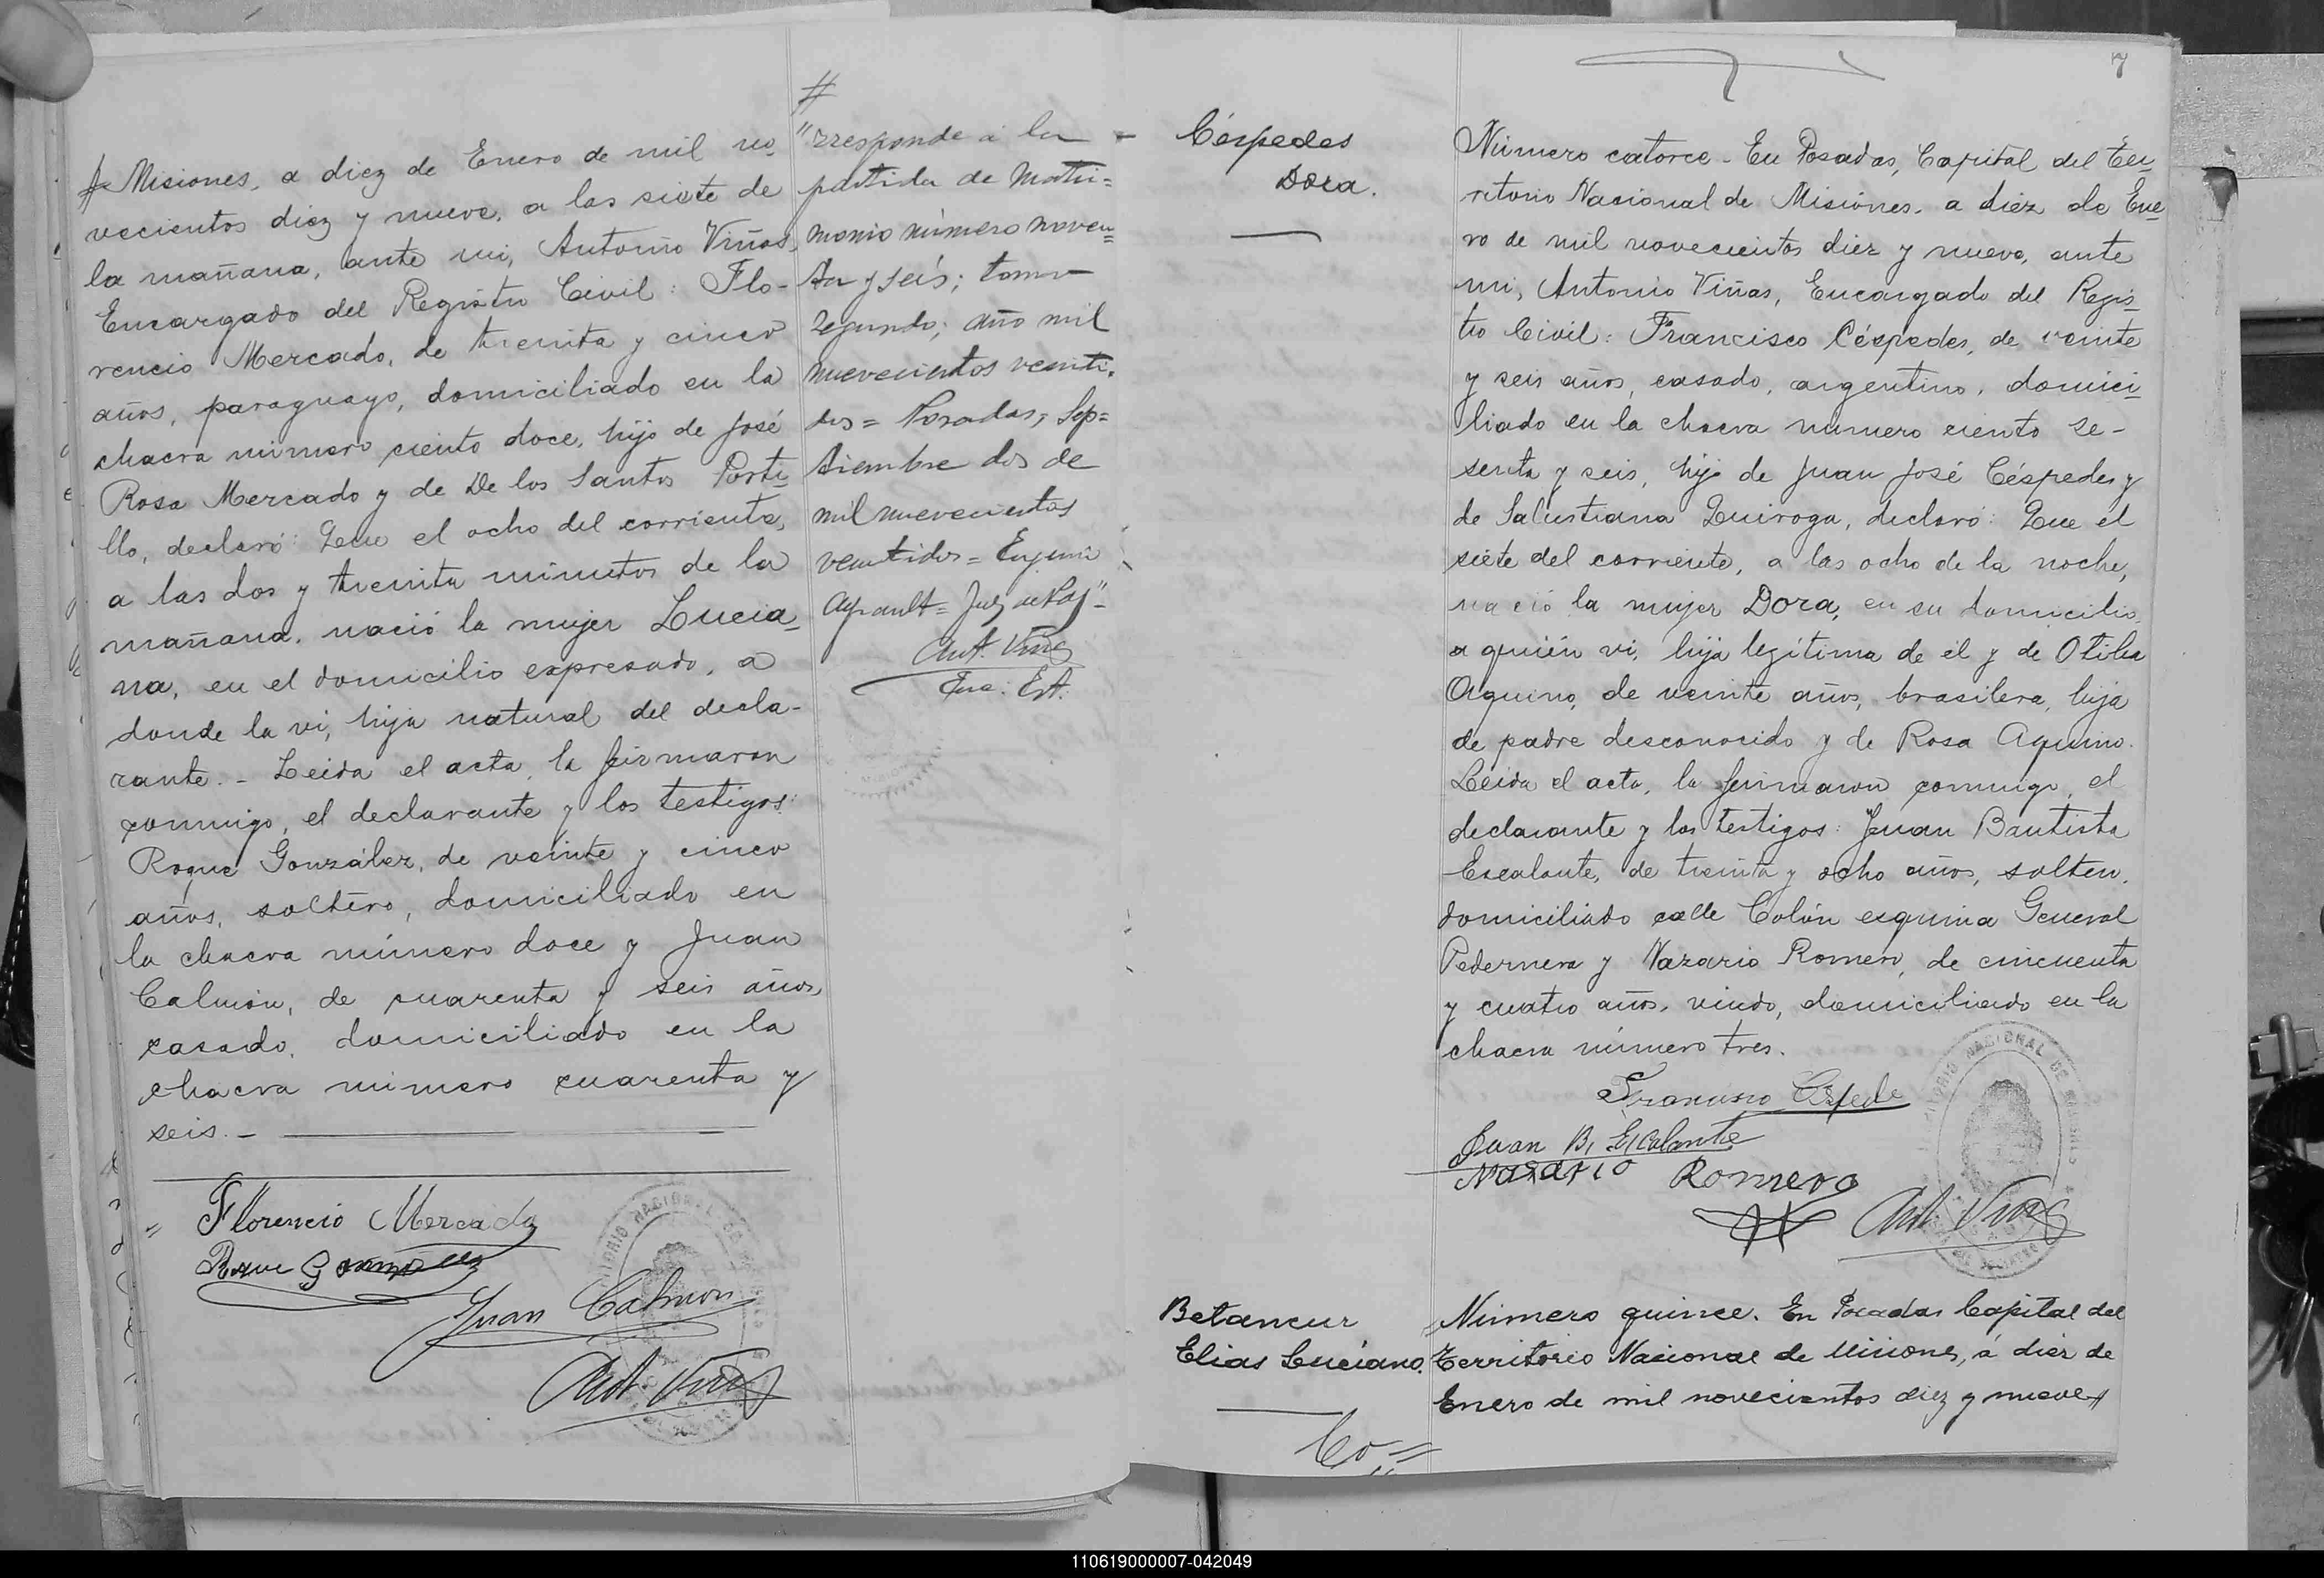 Misiones, a diez de Enero de mil no
vecientos diez y nueve, a las siete de
la mañana, ante mi, Antonio Viñas,
Encargado del Registro Civil: Flo-
rencio Mercado, de treinta y cinco
años, paraguayo, domiciliado en la
chacra número ciento doce, hijo de José
Rosa Mercado y de De los Santos Porti
llo, declaró: Que el ocho del corriente,
a las dos y treinta minutos de la
mañana, nació la mujer Lucia
na, en el domicilio expresado, a
donde la vi, hija natural del decla-
rante. - Leida el acta, la firmaron
conmigo, el declarante y los testigos:
Roque González, de veinte y cinco
años, soltero, domiciliado en
la chacra número doce y Juan
Calmón, de cuarenta y seis años,
casado, domiciliado en la
chacra número cuarenta y
seis. -
Florencio Mercado
Roque González
Juan Calmon
Ant. Viñas
#
"rresponde a la
partida de Matri=
monio número noven=
ta y seis; tomo
segundo; año mil
nuevecientos veinti
dos = Posadas, Sep=
tiembre dos de
mil nuevecientos
veintidos =
Juez de Paz"
Ant. Viñas
Enc. Est.
7
Céspedes
Dora.
Número catorce - En Posadas, Capital del Ter
ritorio Nacional de Misiones, a diez de Ene
ro de mil novecientos diez y nueve, ante
mi, Antonio Viñas, Encargado del Regis
tro Civil: Francisco Céspedes, de veinte
y seis años, casado, argentino, domici
liado en la chacra número ciento se-
senta y seis, hijo de Juan José Céspedes y
de Salustiana Quiroga, declaró: Que el
siete del corriente, a las ocho de la noche,
nació la mujer Dora, en su domicilio,
a quién vi, hija legítima de él y de Otilia
Aquino, de veinte años, brasilera, hija
de padre desconocido y de Rosa Aquino.
Leida el acta, la firmaron conmigo, el
declarante y los testigos: Juan Bautista
Escalante, de treinta y ocho años, soltero,
domiciliado calle Colón esquina General
Pedernera y Nazario Romero, de cincuenta
y cuatro años, viudo, domiciliado en la
chacra número tres.
Francisco Céspede
Juan B. Escalante
Nazario Romero
Ant. Viñas
Betancur
Elias Luciano.
Co
Número quince. En Posadas Capital del
Territorio Nacional de Misiones, á diez de
Enero de mil novecientos diez y nueve
110619000007-042049